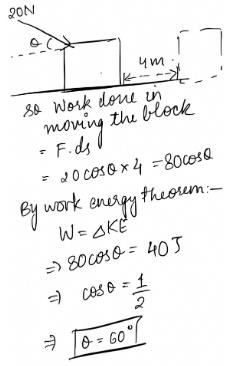 20N
θ
4m
so work done in
moving the block
= F.ds
= 20cosθ × 4 = 80cosθ
By work energy theorem:-
W = ΔKE
⇒ 80cosθ = 40J
⇒ cosθ = 1/2
⇒ θ = 60°